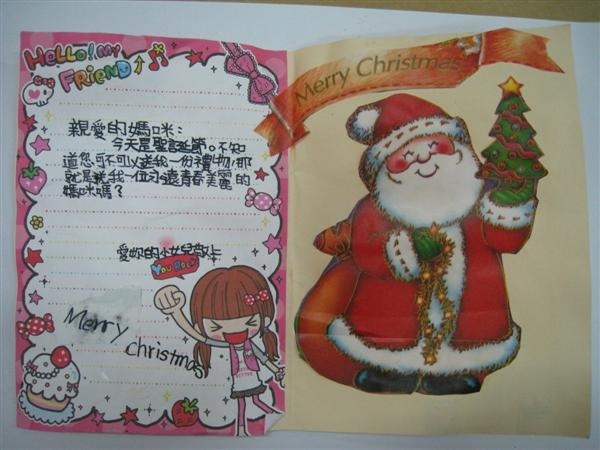 HELLO! MY
FRIEND
親愛的媽咪：
今天是聖誕節。不知
道您可不可以送我一份禮物,那
就是送我一位永遠青春美麗的
媽咪嗎？
愛妳的小女兒敬上
Merry
christmas
Merry Christmas